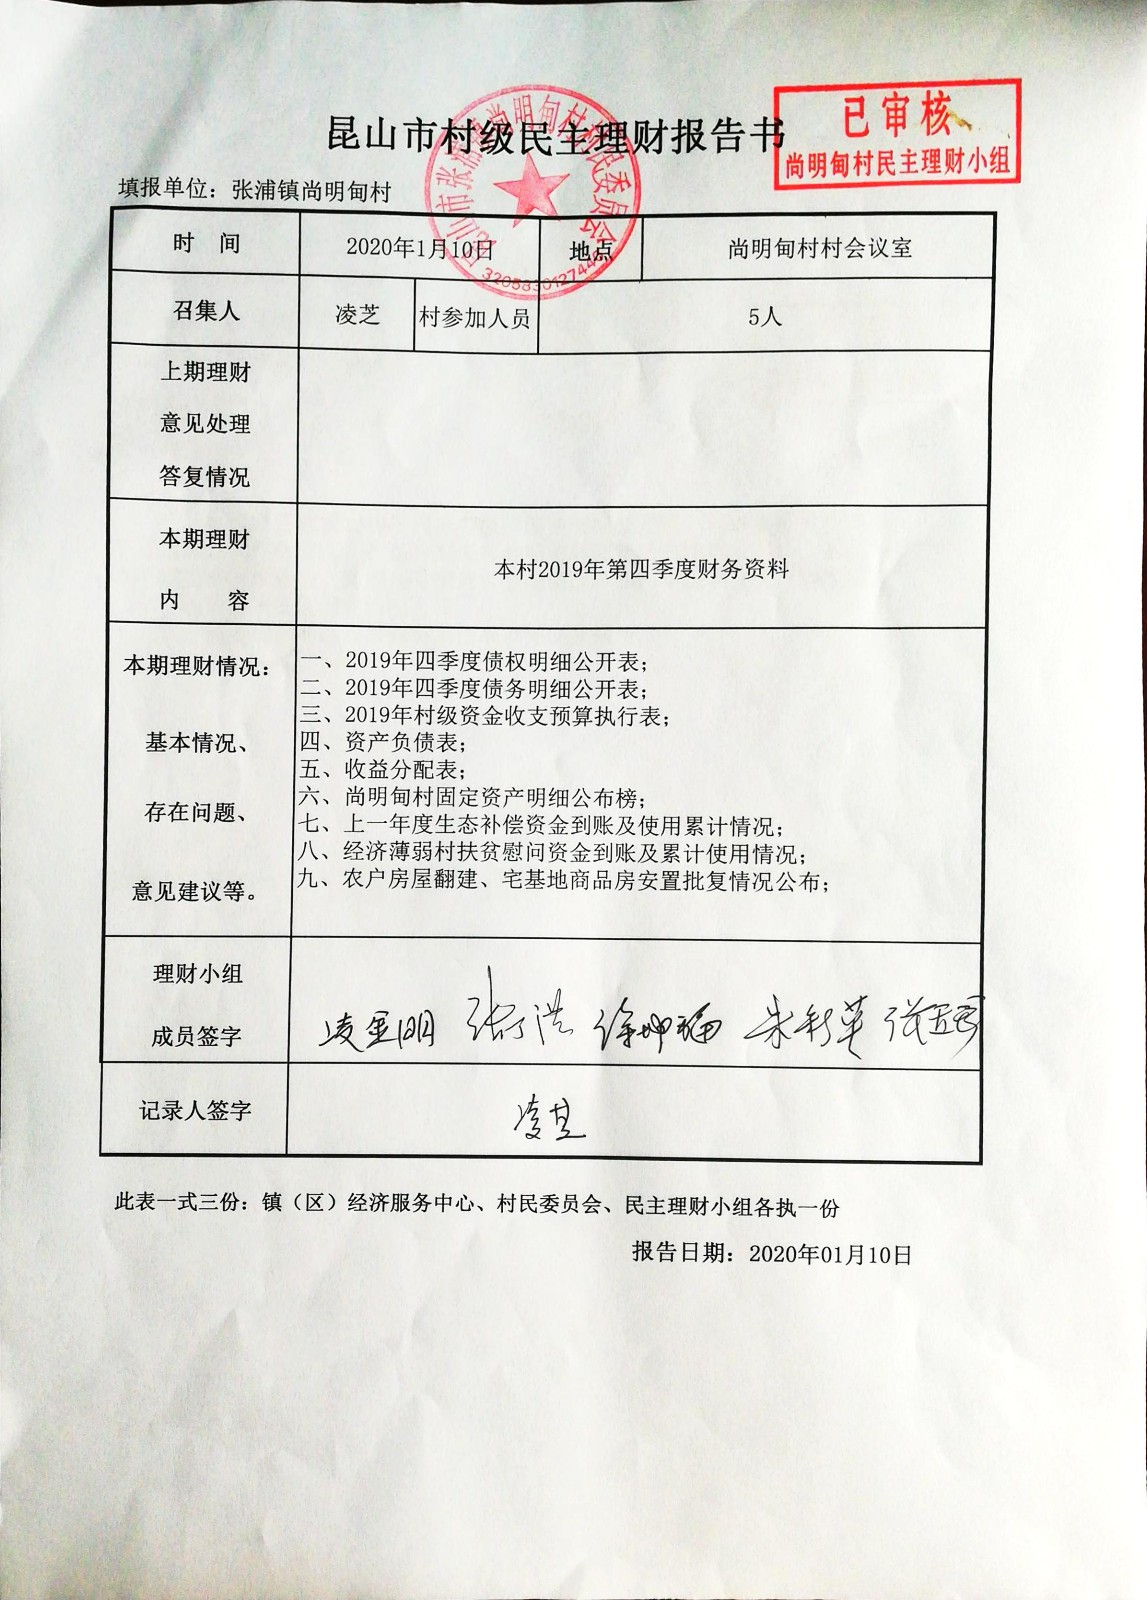 昆山市村级民主理财报告书
已审核
尚明甸村民主理财小组
昆山市张浦镇尚明甸村村民委员会
填报单位：张浦镇尚明甸村
时 间 2020年1月10日 地点 尚明甸村村会议室
召集人 凌芝 村参加人员 5人
上期理财
意见处理
答复情况
本期理财
内 容
本村2019年第四季度财务资料
本期理财情况：
基本情况、
存在问题、
意见建议等。
一、2019年四季度债权明细公开表；
二、2019年四季度债务明细公开表；
三、2019年村级资金收支预算执行表；
四、资产负债表；
五、收益分配表；
六、尚明甸村固定资产明细公布榜；
七、上一年度生态补偿资金到账及使用累计情况；
八、经济薄弱村扶贫慰问资金到账及累计使用情况；
九、农户房屋翻建、宅基地商品房安置批复情况公布；
理财小组
成员签字
凌金明 张浩 徐坤福 朱彩英
记录人签字 凌芝
此表一式三份：镇（区）经济服务中心、村民委员会、民主理财小组各执一份
报告日期：2020年01月10日